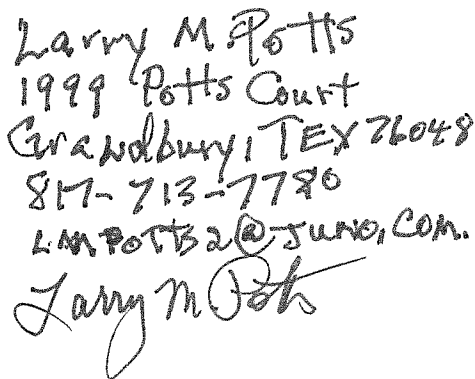 Larry M. Potts
1999 Potts Court
Grandbury, TEX 76048
817-713-7780
LMPOTTS2@JUNO.COM.
Larry M Potts